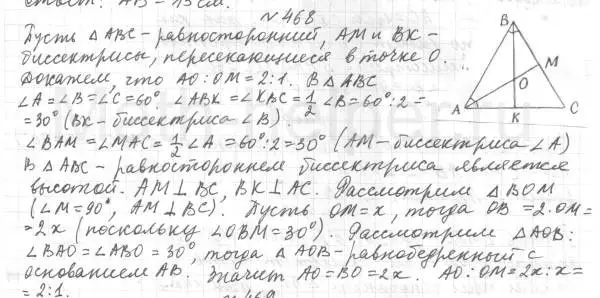 Ответ: AB = 15 см.
№ 468
Пусть △ABC - равносторонний, AM и BK -
биссектрисы, пересекающиеся в точке O.
Докажем, что AO : OM = 2:1. В △ABC
∠A = ∠B = ∠C = 60°. ∠ABK = ∠KBC = 1/2 ∠B = 60° : 2 =
= 30° (BK - биссектриса ∠B).
∠BAM = ∠MAC = 1/2 ∠A = 60° : 2 = 30° (AM - биссектриса ∠A)
В △ABC - равностороннем биссектриса является
высотой. AM ⊥ BC, BK ⊥ AC. Рассмотрим △BOM
(∠M = 90°, AM ⊥ BC). Пусть OM = x, тогда OB = 2·OM =
= 2x (поскольку ∠OBM = 30°). Рассмотрим △AOB:
∠BAO = ∠ABO = 30°, тогда △AOB - равнобедренный с
основанием AB. Значит AO = BO = 2x. AO : OM = 2x : x =
= 2:1.
№ 469
B
M
O
A
K
C